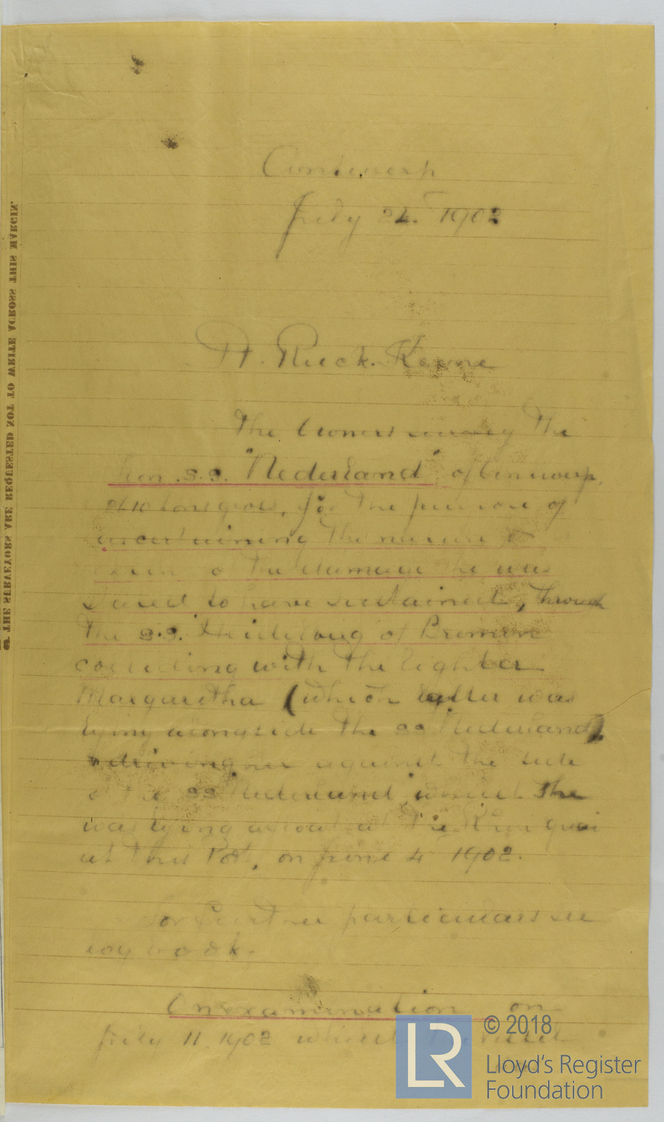 Antwerp
July 24th 1902
H. Ruck Keene
The Owners survey the
Iron s.s. "Nederland" of Antwerp,
tons gross, for the purpose of
ascertaining the nature &
of the damage she was
stated to have sustained, through
the s.s. "Heidelberg" of Bremen
colliding with the lighter
Margaretha (which latter was
lying alongside the ss Nederland)
& driving her against the side
of the ss "Nederland" whilst she
was lying afloat at the Rhin quai
at this Port, on June 4 1902.
For further particulars see
log book.
On examination on
July 11 1902 whilst the vessel
THE SURVEYORS ARE REQUESTED NOT TO WRITE ACROSS THIS MARGIN.
LR
© 2018
Lloyd's Register
Foundation